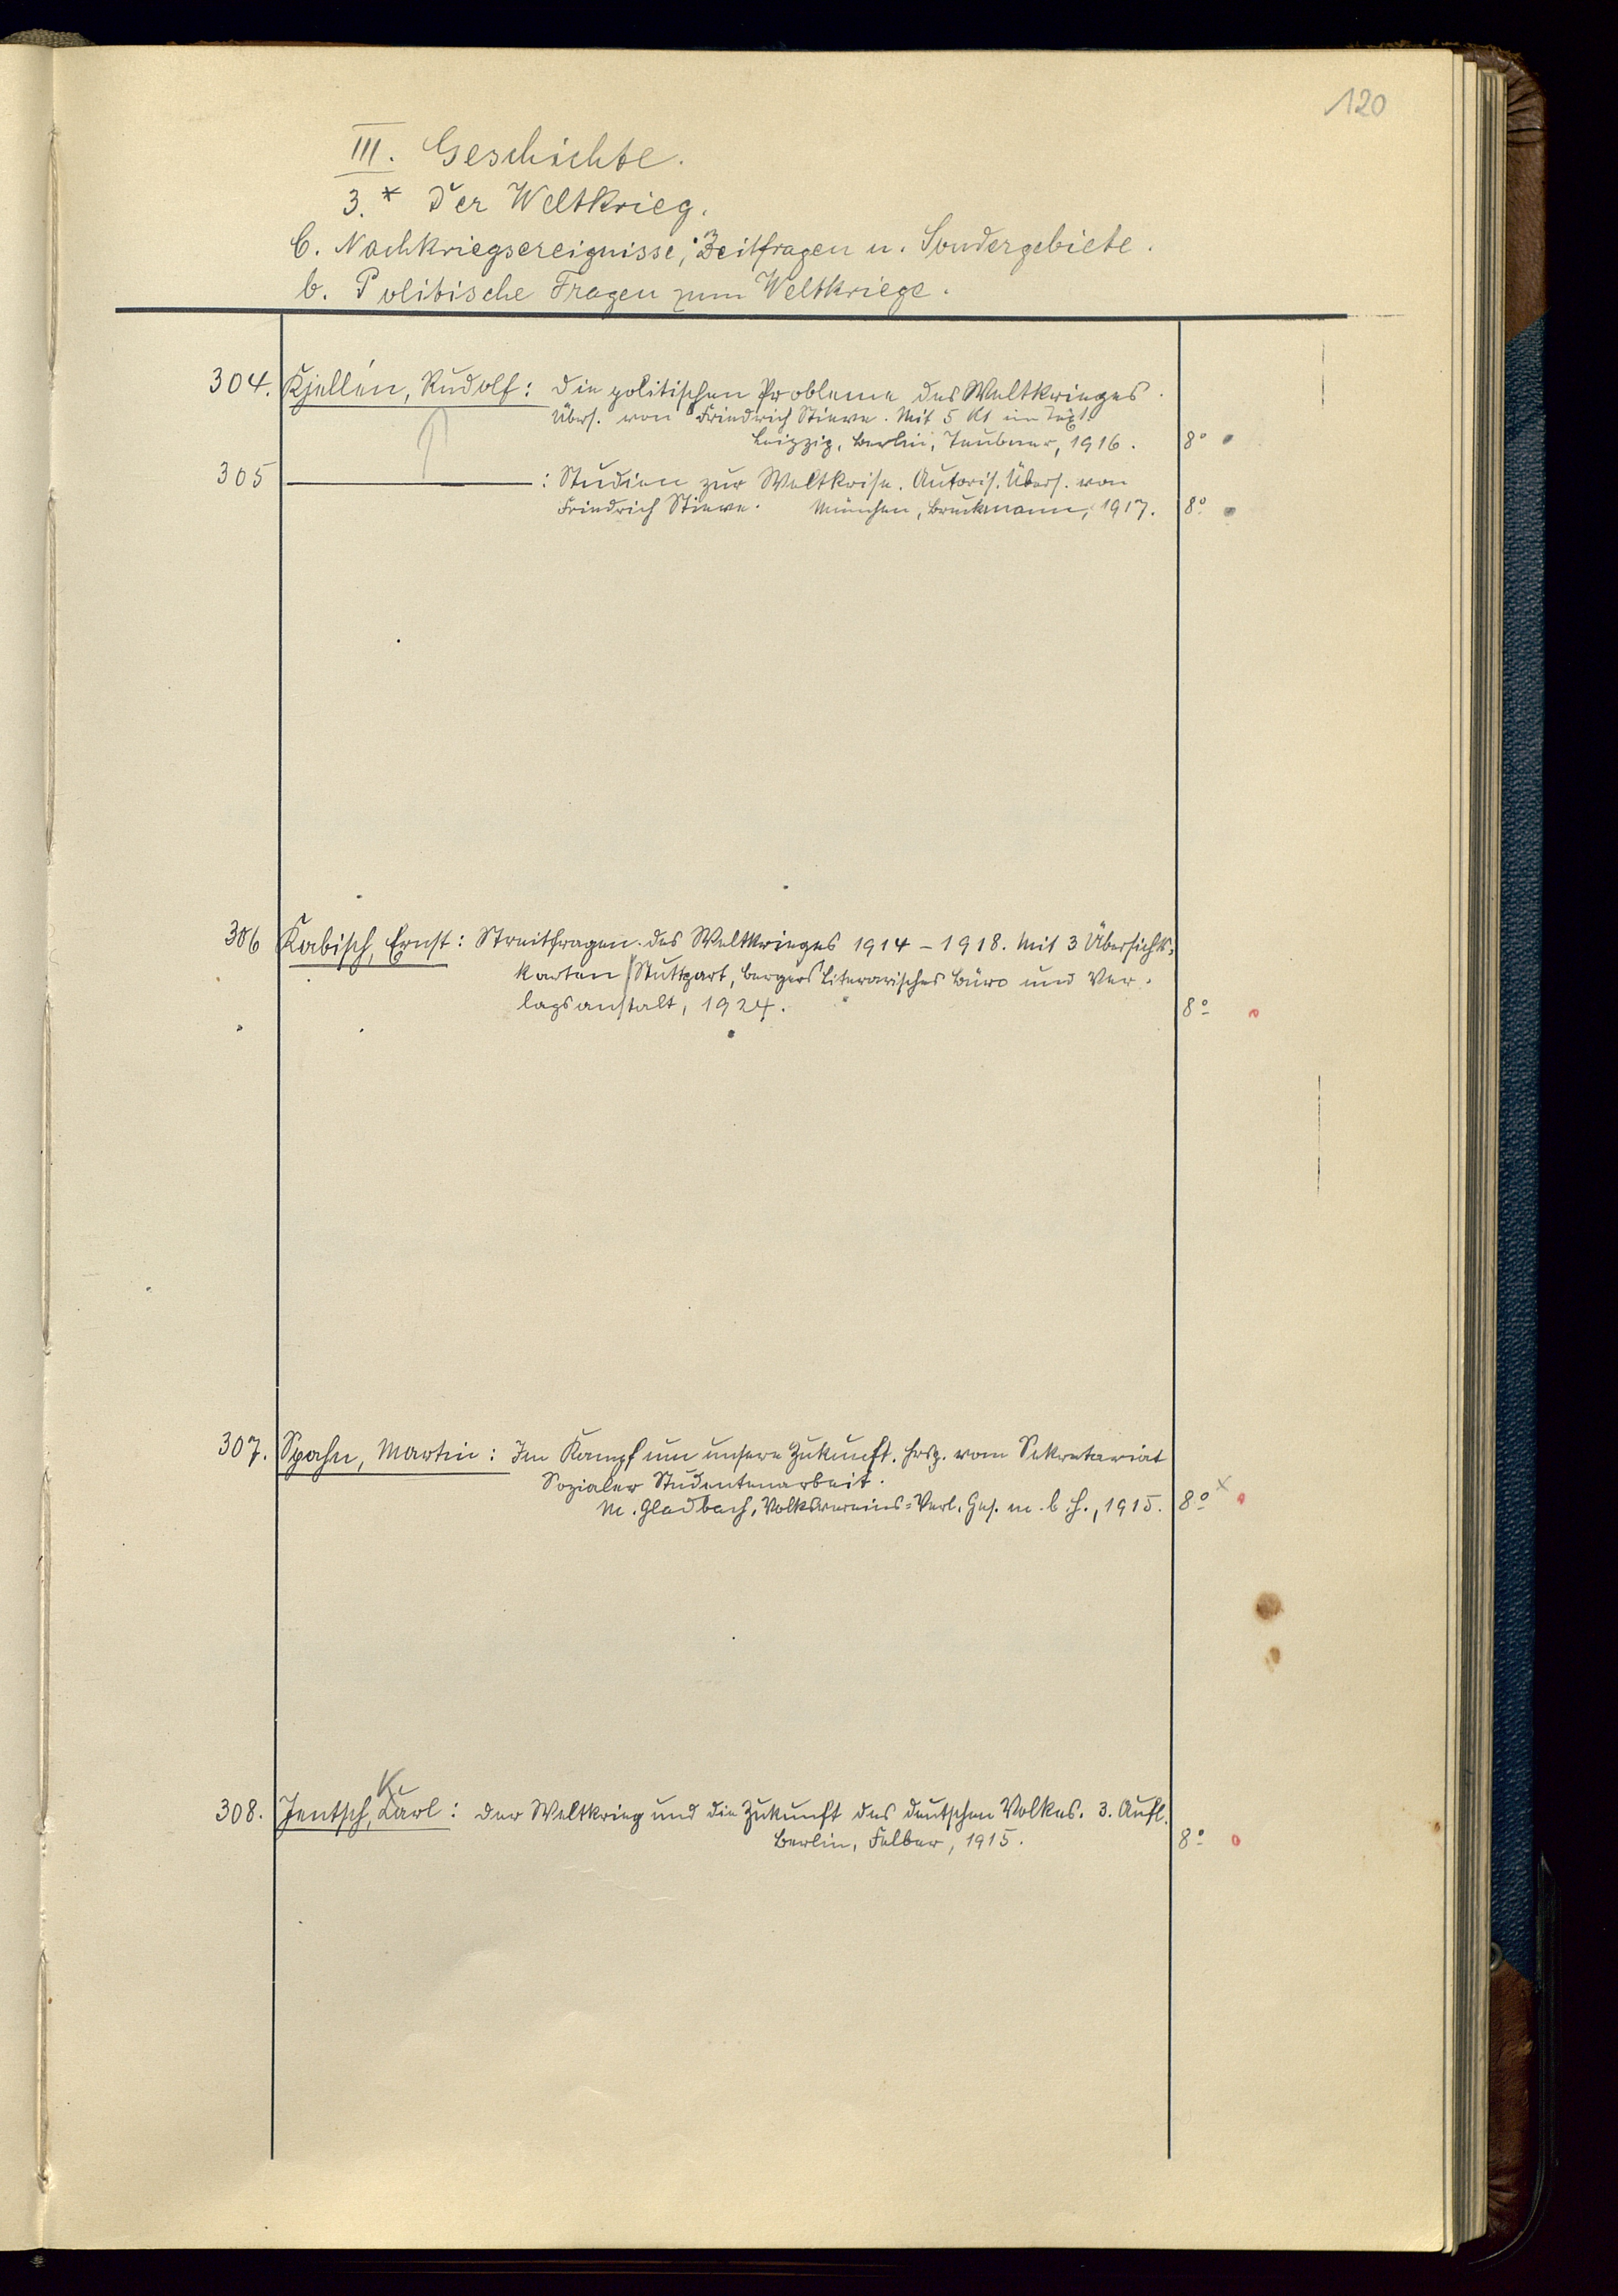 120
III. Geschichte.
3.* Der Weltkrieg.
C. Nachkriegsereignisse, Zeitfragen u. Sondergebiete.
b. Politische Fragen zum Weltkriege.
304. Kjellén, Rudolf: Die politischen Probleme des Weltkrieges.
Übers. von Friedrich Stieve. Mit 5 Kt im Text.
Leipzig, Berlin, Teubner, 1916. 8°
305 ———: Studien zur Weltkrise. Autoris. Übers. von
Friedrich Stieve. München, Bruckmann, 1917. 8°
306 Kabisch, Ernst: Streitfragen des Weltkrieges 1914-1918. Mit 3 Übersichts=
karten Stuttgart, Bergers Literarisches Büro und Ver=
lagsanstalt, 1924. 8°
307. Spahn, Martin: Im Kampf um unsere Zukunft. Hrsg. vom Sekretariat
Sozialer Studentenarbeit.
M. Gladbach, Volksvereins=Verl. Ges. m. b. H., 1915. 8° x
K
308. Jentsch, Karl: Der Weltkrieg und die Zukunft des deutschen Volkes. 3. Aufl.
Berlin, Felber, 1915. 8°